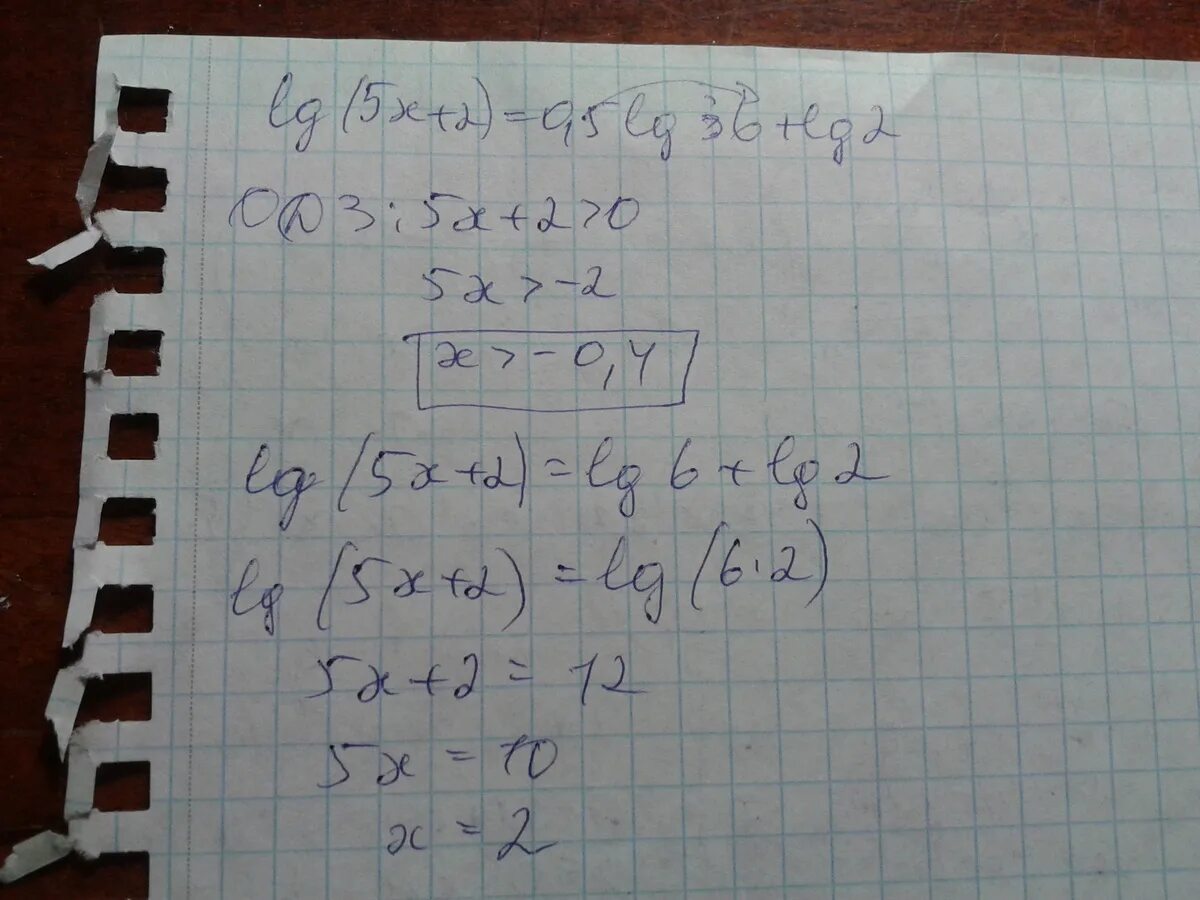 lg(5x+2)=0,5lg36+lg2
ОДЗ: 5x+2>0
5x>-2
x>-0,4
lg(5x+2)=lg6+lg2
lg(5x+2)=lg(6·2)
5x+2=12
5x=10
x=2